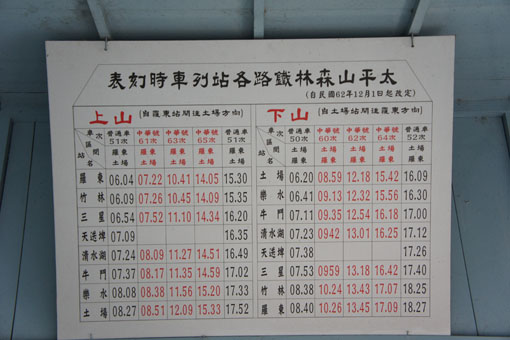 太平山森林鐵路各站列車時刻表
(自民國62年12月1日起改定)
上山 (自羅東站開往土場方向)
車次 普通車 中華號 中華號 中華號 普通車
51次 61次 63次 65次 51次
區間 羅東 羅東 羅東 羅東 羅東
站名 土場 土場 土場 土場 土場
羅東 06.04 07.22 10.41 14.05 15.30
竹林 06.09 07.26 10.45 14.09 15.35
三星 06.54 07.52 11.10 14.34 16.20
天送埤 07.09 16.35
清水湖 07.24 08.09 11.27 14.51 16.49
牛門 07.37 08.17 11.35 14.59 17.02
樂水 08.08 08.38 11.56 15.20 17.33
土場 08.27 08.51 12.09 15.33 17.52
下山 (自土場站開往羅東方向)
車次 普通車 中華號 中華號 中華號 普通車
50次 60次 62次 64次 52次
區間 土場 土場 土場 土場 土場
站名 羅東 羅東 羅東 羅東 羅東
土場 06.20 08.59 12.18 15.42 16.09
樂水 06.41 09.13 12.32 15.56 16.30
牛門 07.11 09.35 12.54 16.18 17.00
清水湖 07.23 0942 13.01 16.25 17.12
天送埤 07.38 17.26
三星 07.53 0959 13.18 16.42 17.40
竹林 08.38 10.24 13.43 17.07 18.27
羅東 08.40 10.26 13.45 17.09 18.27